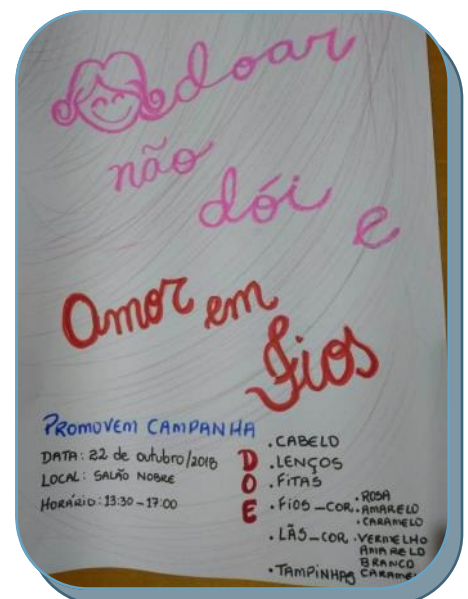 doar
não
dói e
Amor em
Fios
PROMOVEM CAMPANHA
DATA: 22 de outubro/2018
LOCAL: SALÃO NOBRE
HORÁRIO: 13:30 - 17:00
DOE
• CABELO
• LENÇOS
• FITAS
• FIOS - COR • ROSA
• AMARELO
• CARAMELO
• LÃS - COR • VERMELHO
AMARELO
BRANCO
CARAMEL
• TAMPINHAS